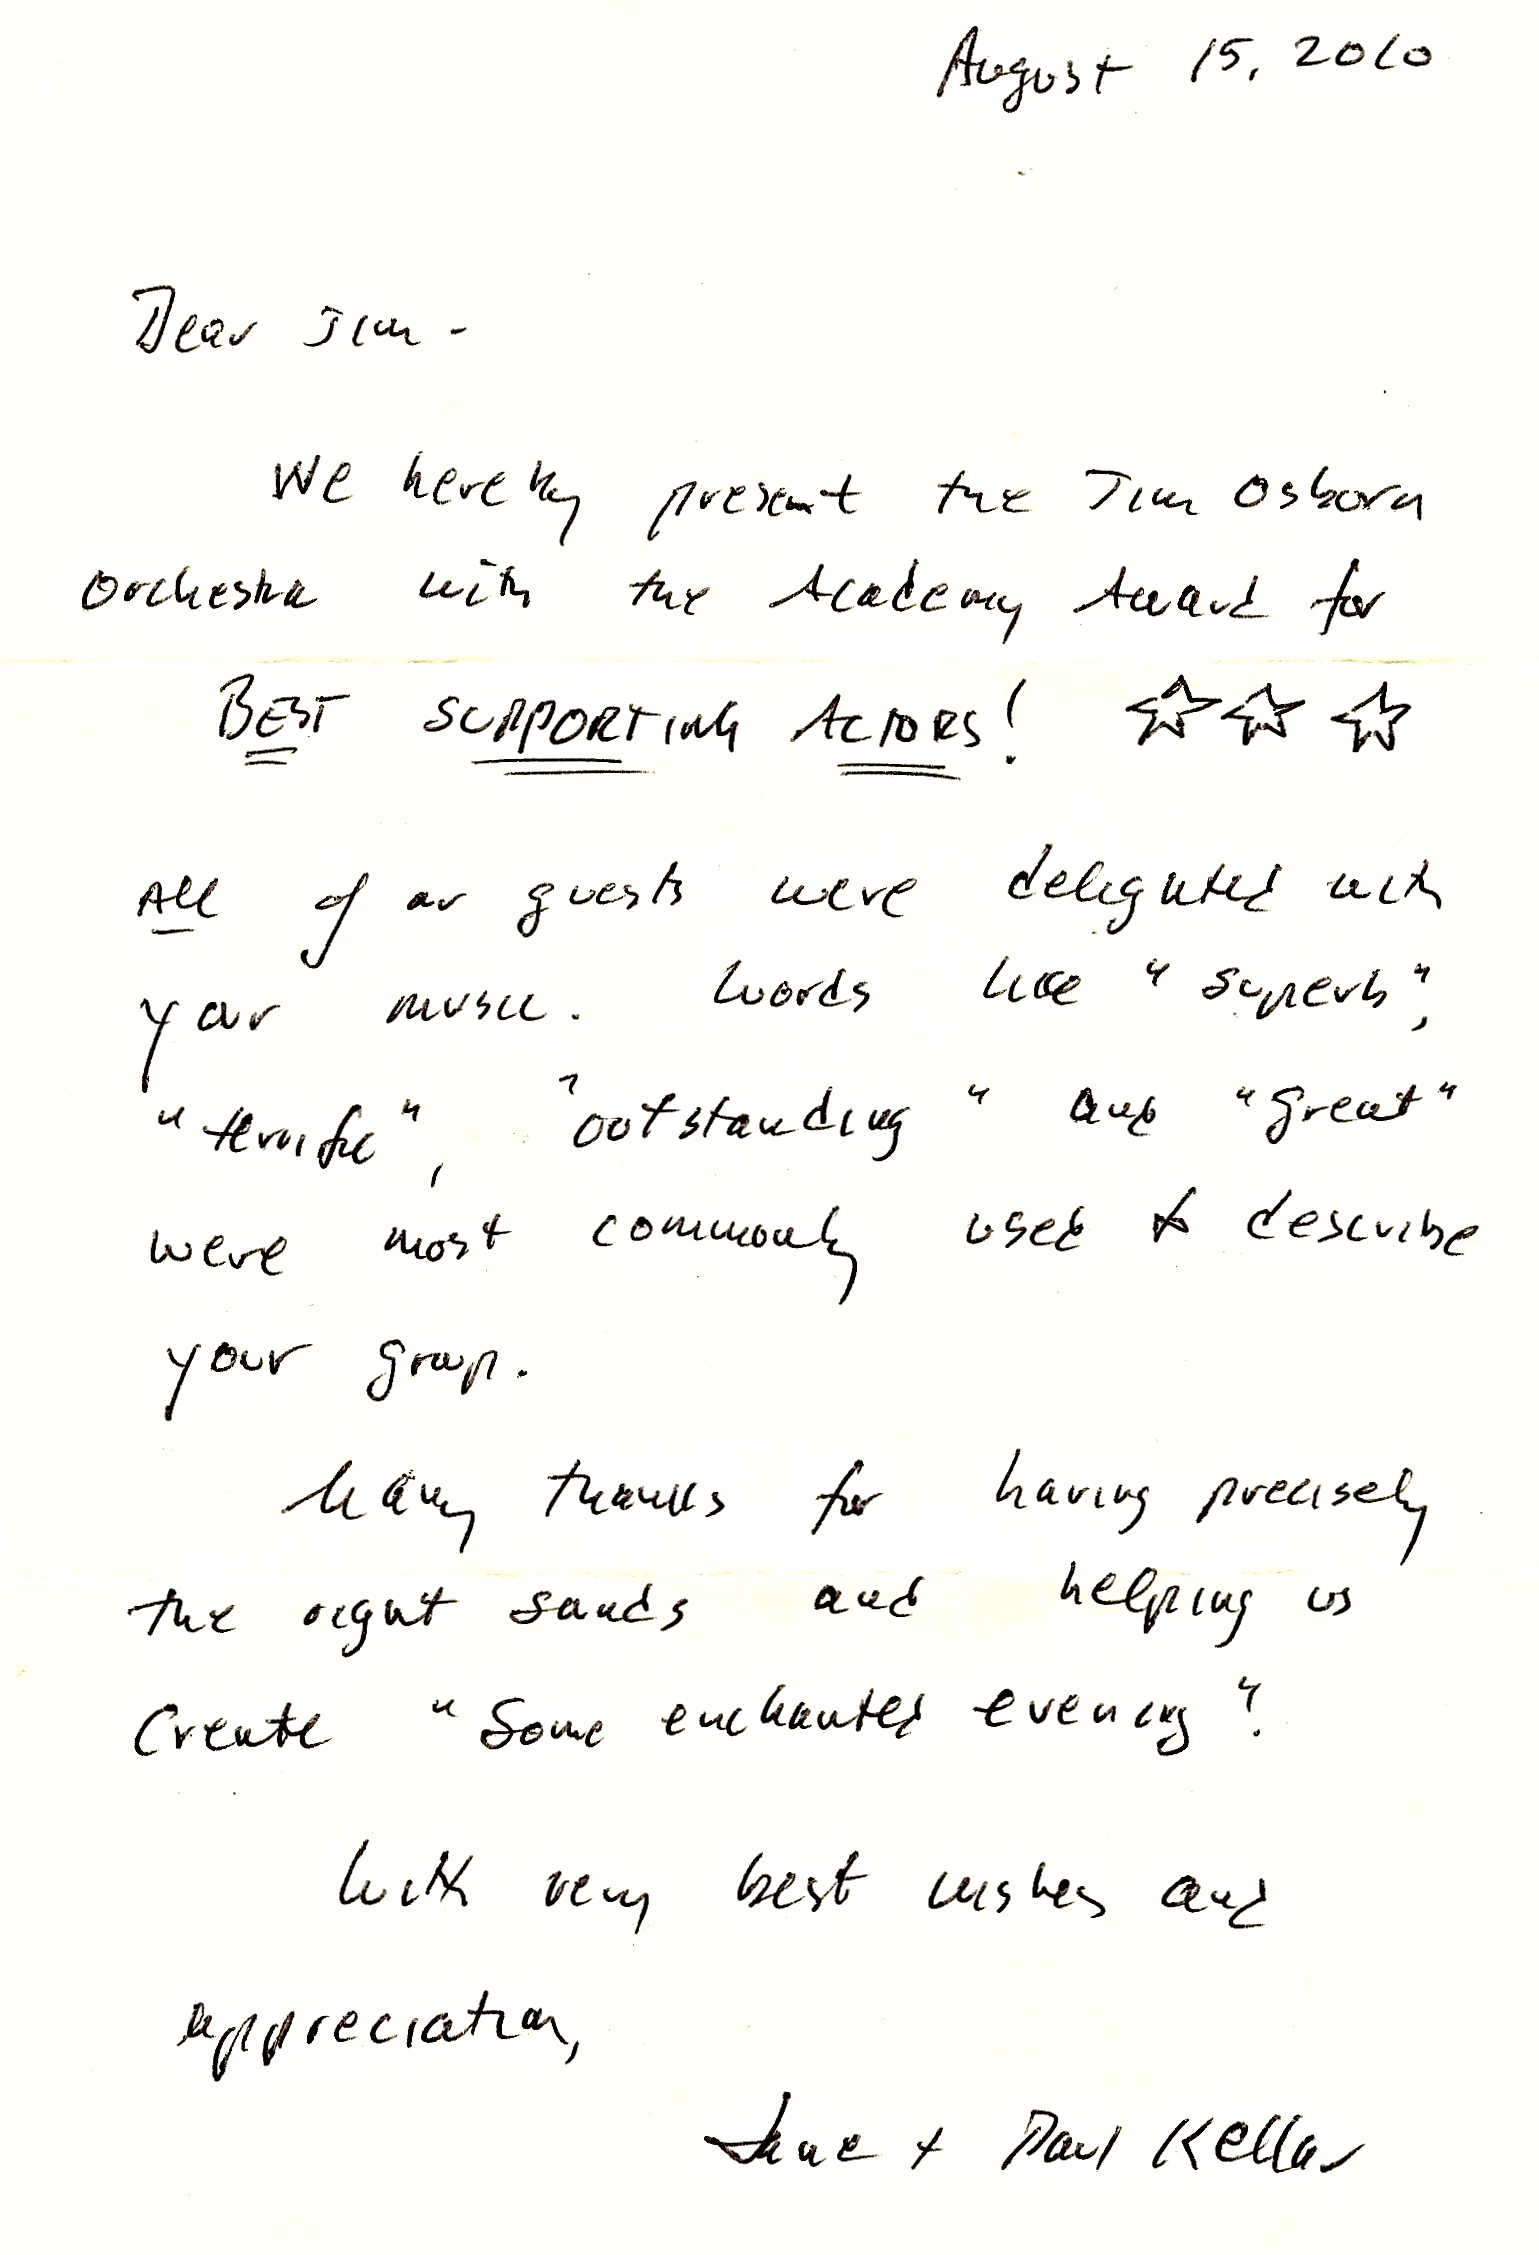 August 15, 2010
Dear Jim -
We hereby present the Jim Osborn
Orchestra with the Academy Award for
BEST SUPPORTING ACTORS! ☆☆☆
All of our guests were delighted with
your music. Words like "superb",
"terrific", "outstanding" and "great"
were most commonly used to describe
your group.
Many thanks for having precisely
the right sounds and helping us
Create "Some enchanted evening".
With very best wishes and
appreciation,
Jane + Paul Kellar